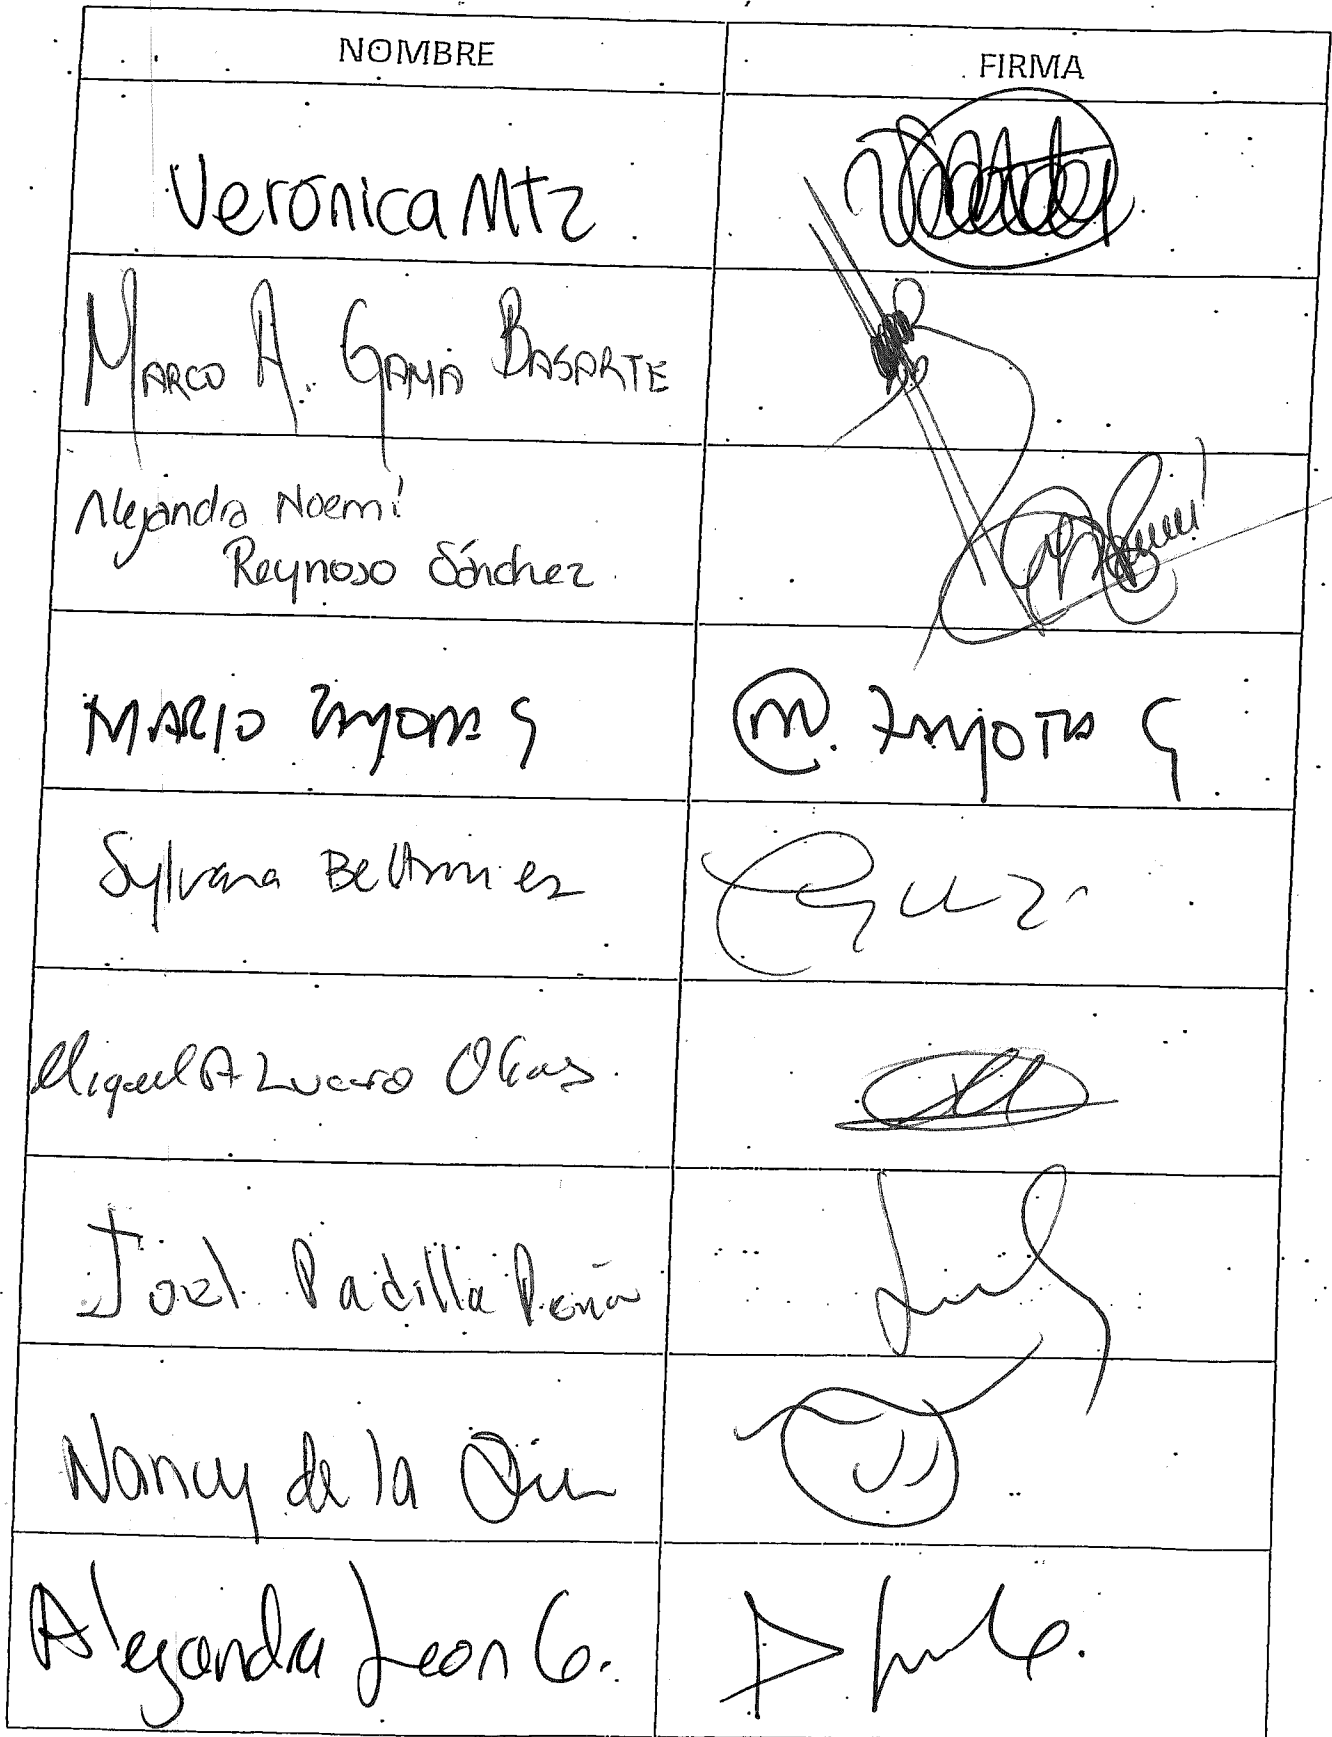 NOMBRE FIRMA
Verónica Mtz
MARCO A. GAMA BASARTE
Alejandra Noemí
Reynoso Sánchez
MARIO ZAYOTA G M. ZAYOTA G
Sylvana Beltrones
Miguel A Lucero Olivas
Joel Padilla Peña
Nancy de la
Alejandra Leon G.